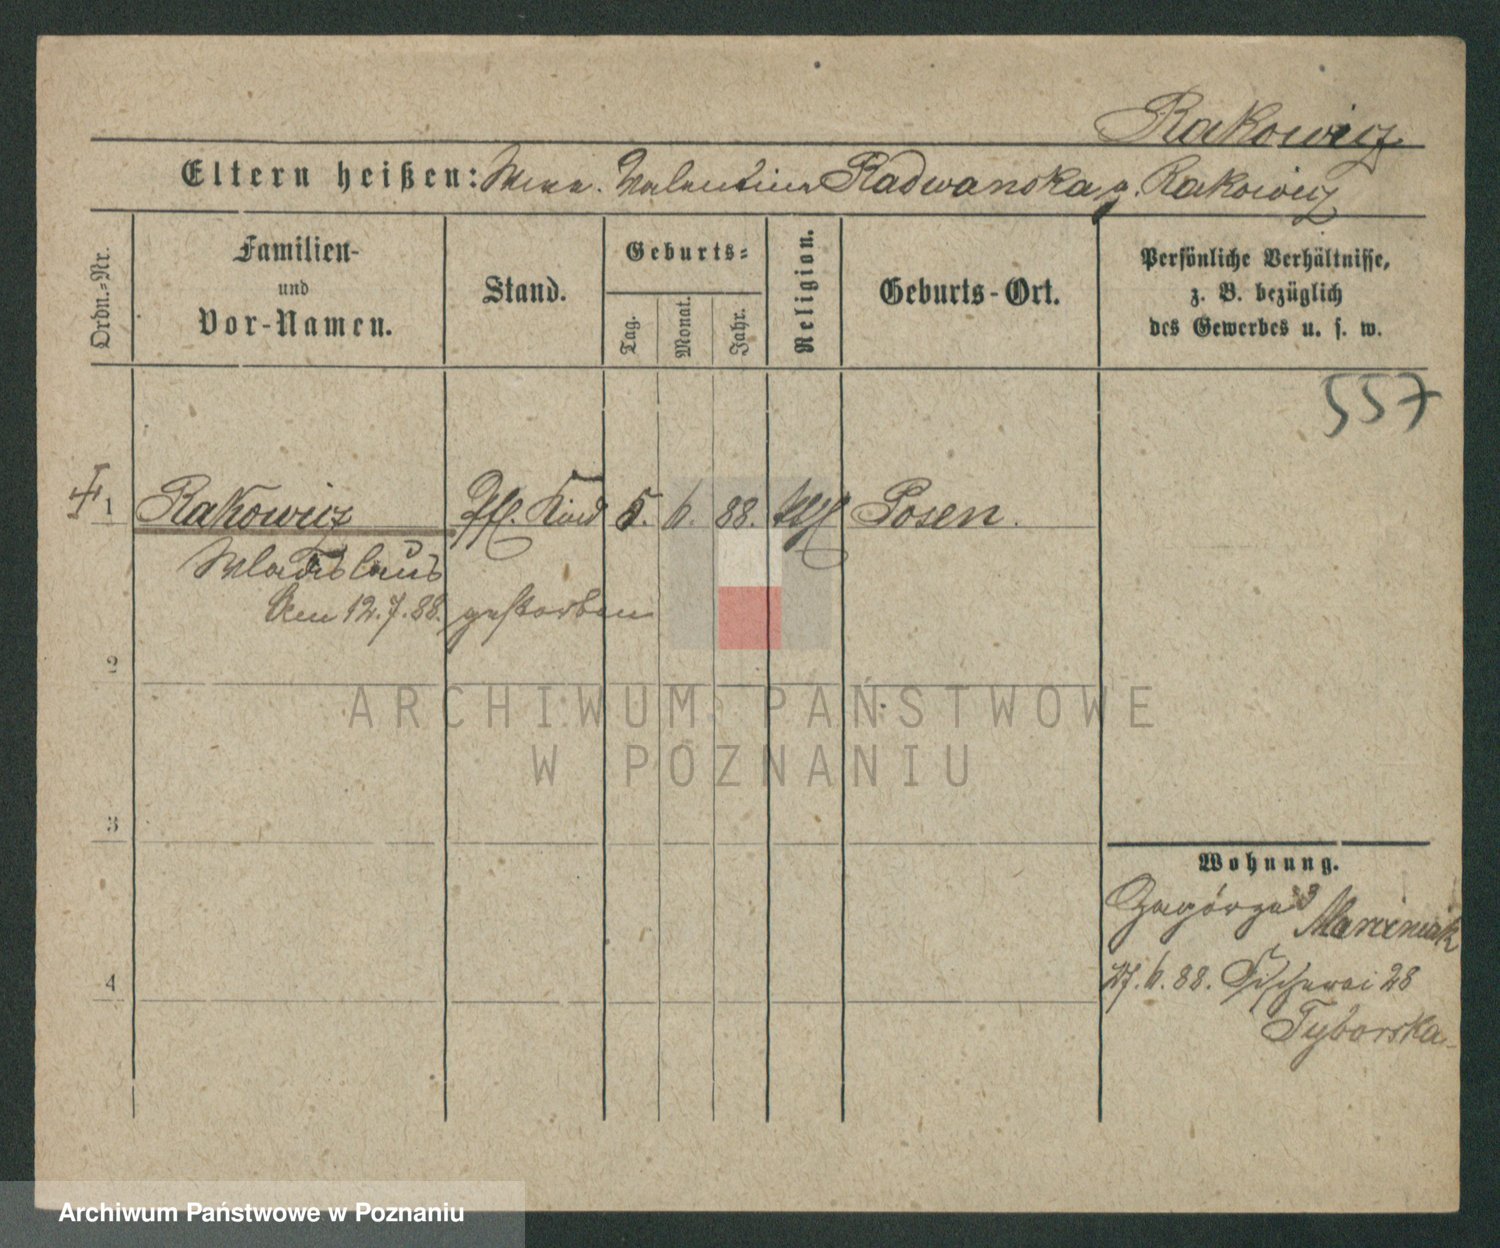 Rakowicz
Eltern heißen: Valentina Radwanska g. Rakowicz
Ordn.-Nr.
Familien-
und
Vor-Namen.
Stand.
Geburts-
Tag.
Monat.
Jahr.
Religion.
Geburts-Ort.
Persönliche Verhältnisse,
z. B. bezüglich
des Gewerbes u. s. w.
557
1 Rakowicz Pfl. Kind 5. 6. 88. kth Posen.
Wladislaus
den 12. 7. 88. gestorben
2
3
4
Wohnung.
Zagórze 3 Marciniak
27. 6. 88. Fischerei 28
Tyborska
ARCHIWUM PAŃSTWOWE
W POZNANIU
Archiwum Państwowe w Poznaniu